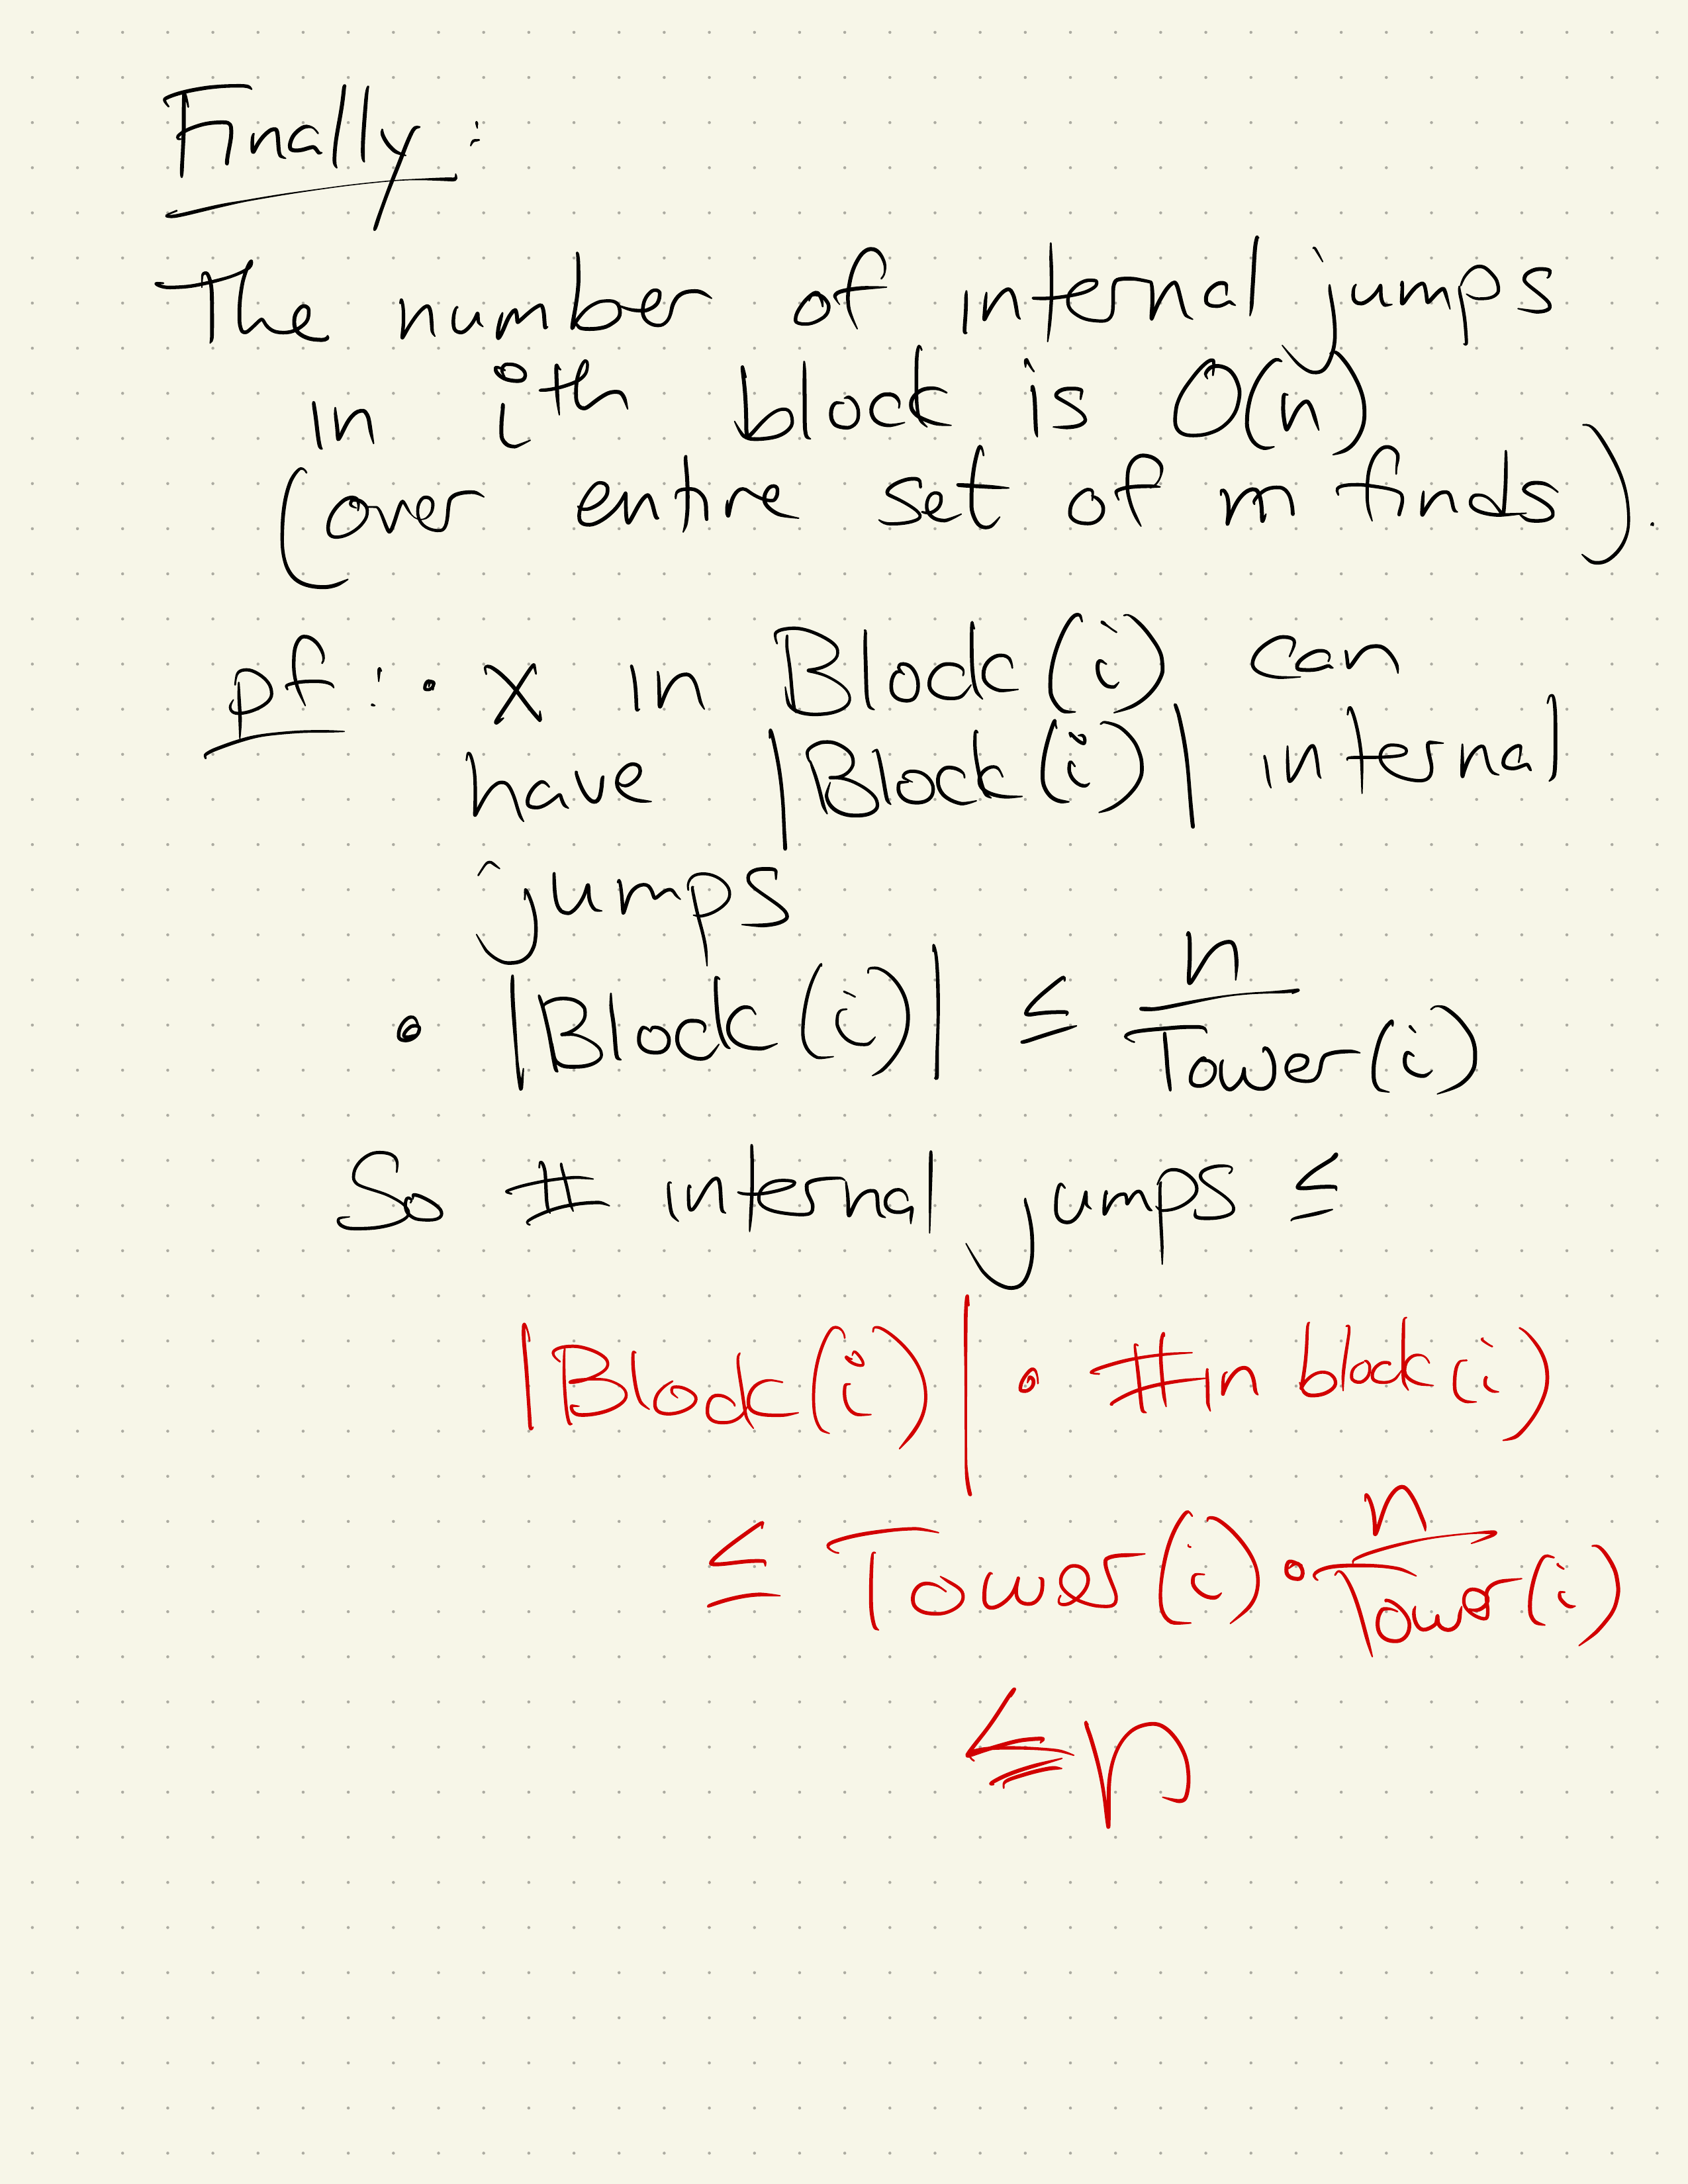 Finally:
The number of internal jumps
in ith block is O(n)
(over entire set of m finds).
pf: • x in Block(i) can
have |Block(i)| internal
jumps
• |Block(i)| ≤ n/Tower(i)
So # internal jumps ≤
|Block(i)| • # in block(i)
≤ Tower(i) • n/Tower(i)
≤ n